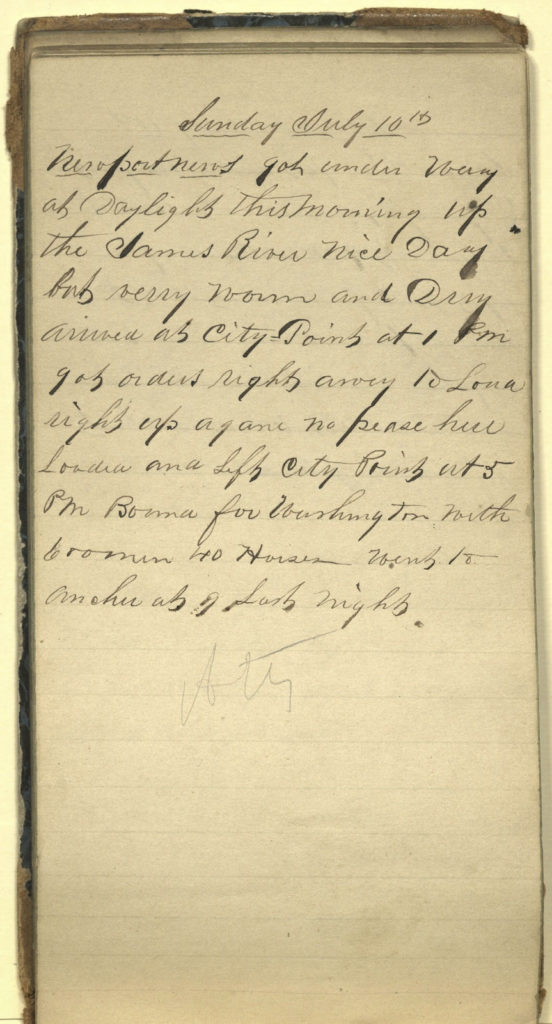 Sunday July 10th
Newport news got under Way
at Daylight this Morning up
the James River Nice Day
but verry worm and Dry
arived at City Point at 1 Pm
got orders right away to Load
right up agane no pease here
Loaded and Left City Point at 5
PM Bound for Washington with
600 men 40 Horses went to
ancher at 9 Last Night